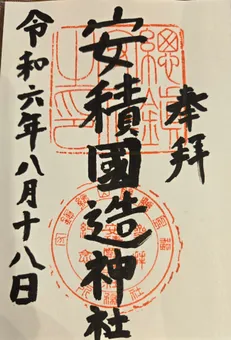 奉拝
安積國造神社
令和六年八月十八日